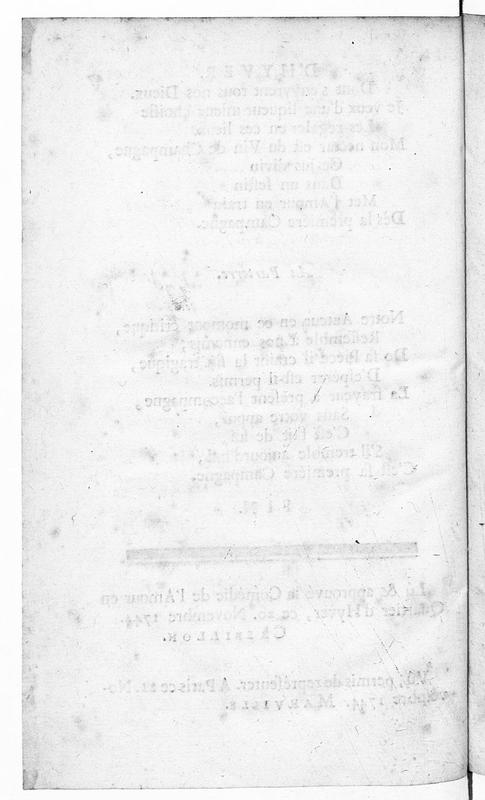 D'HYVER.
Dont s'enyvrent tous nos Dieux.
Je veux d'une liqueur mieux choisie
Les régaler en ces lieux
Mon nectar est du Vin de Champagne,
Ce jus divin
Dans un festin
Met l'Amour en train
Dès la première Campagne.
Au Parterre.
Notre Auteur en ce moment critique,
Ressemble à nos ennemis;
De sa Piéce il craint la fin tragique,
D'espérer est-il permis.
La frayeur à présent l'accompagne,
Sans votre appui,
C'est fait de lui,
S'il tremble aujourd'hui,
C'est sa première Campagne.
FIN.
Lu & approuvé la Comédie de l'Amour en
Quartier d'Hyver, ce 20. Novembre 1744.
CRÉBILLON.
Vû, permis de représenter. A Paris ce 21. No-
vembre 1744. MARVILLE.